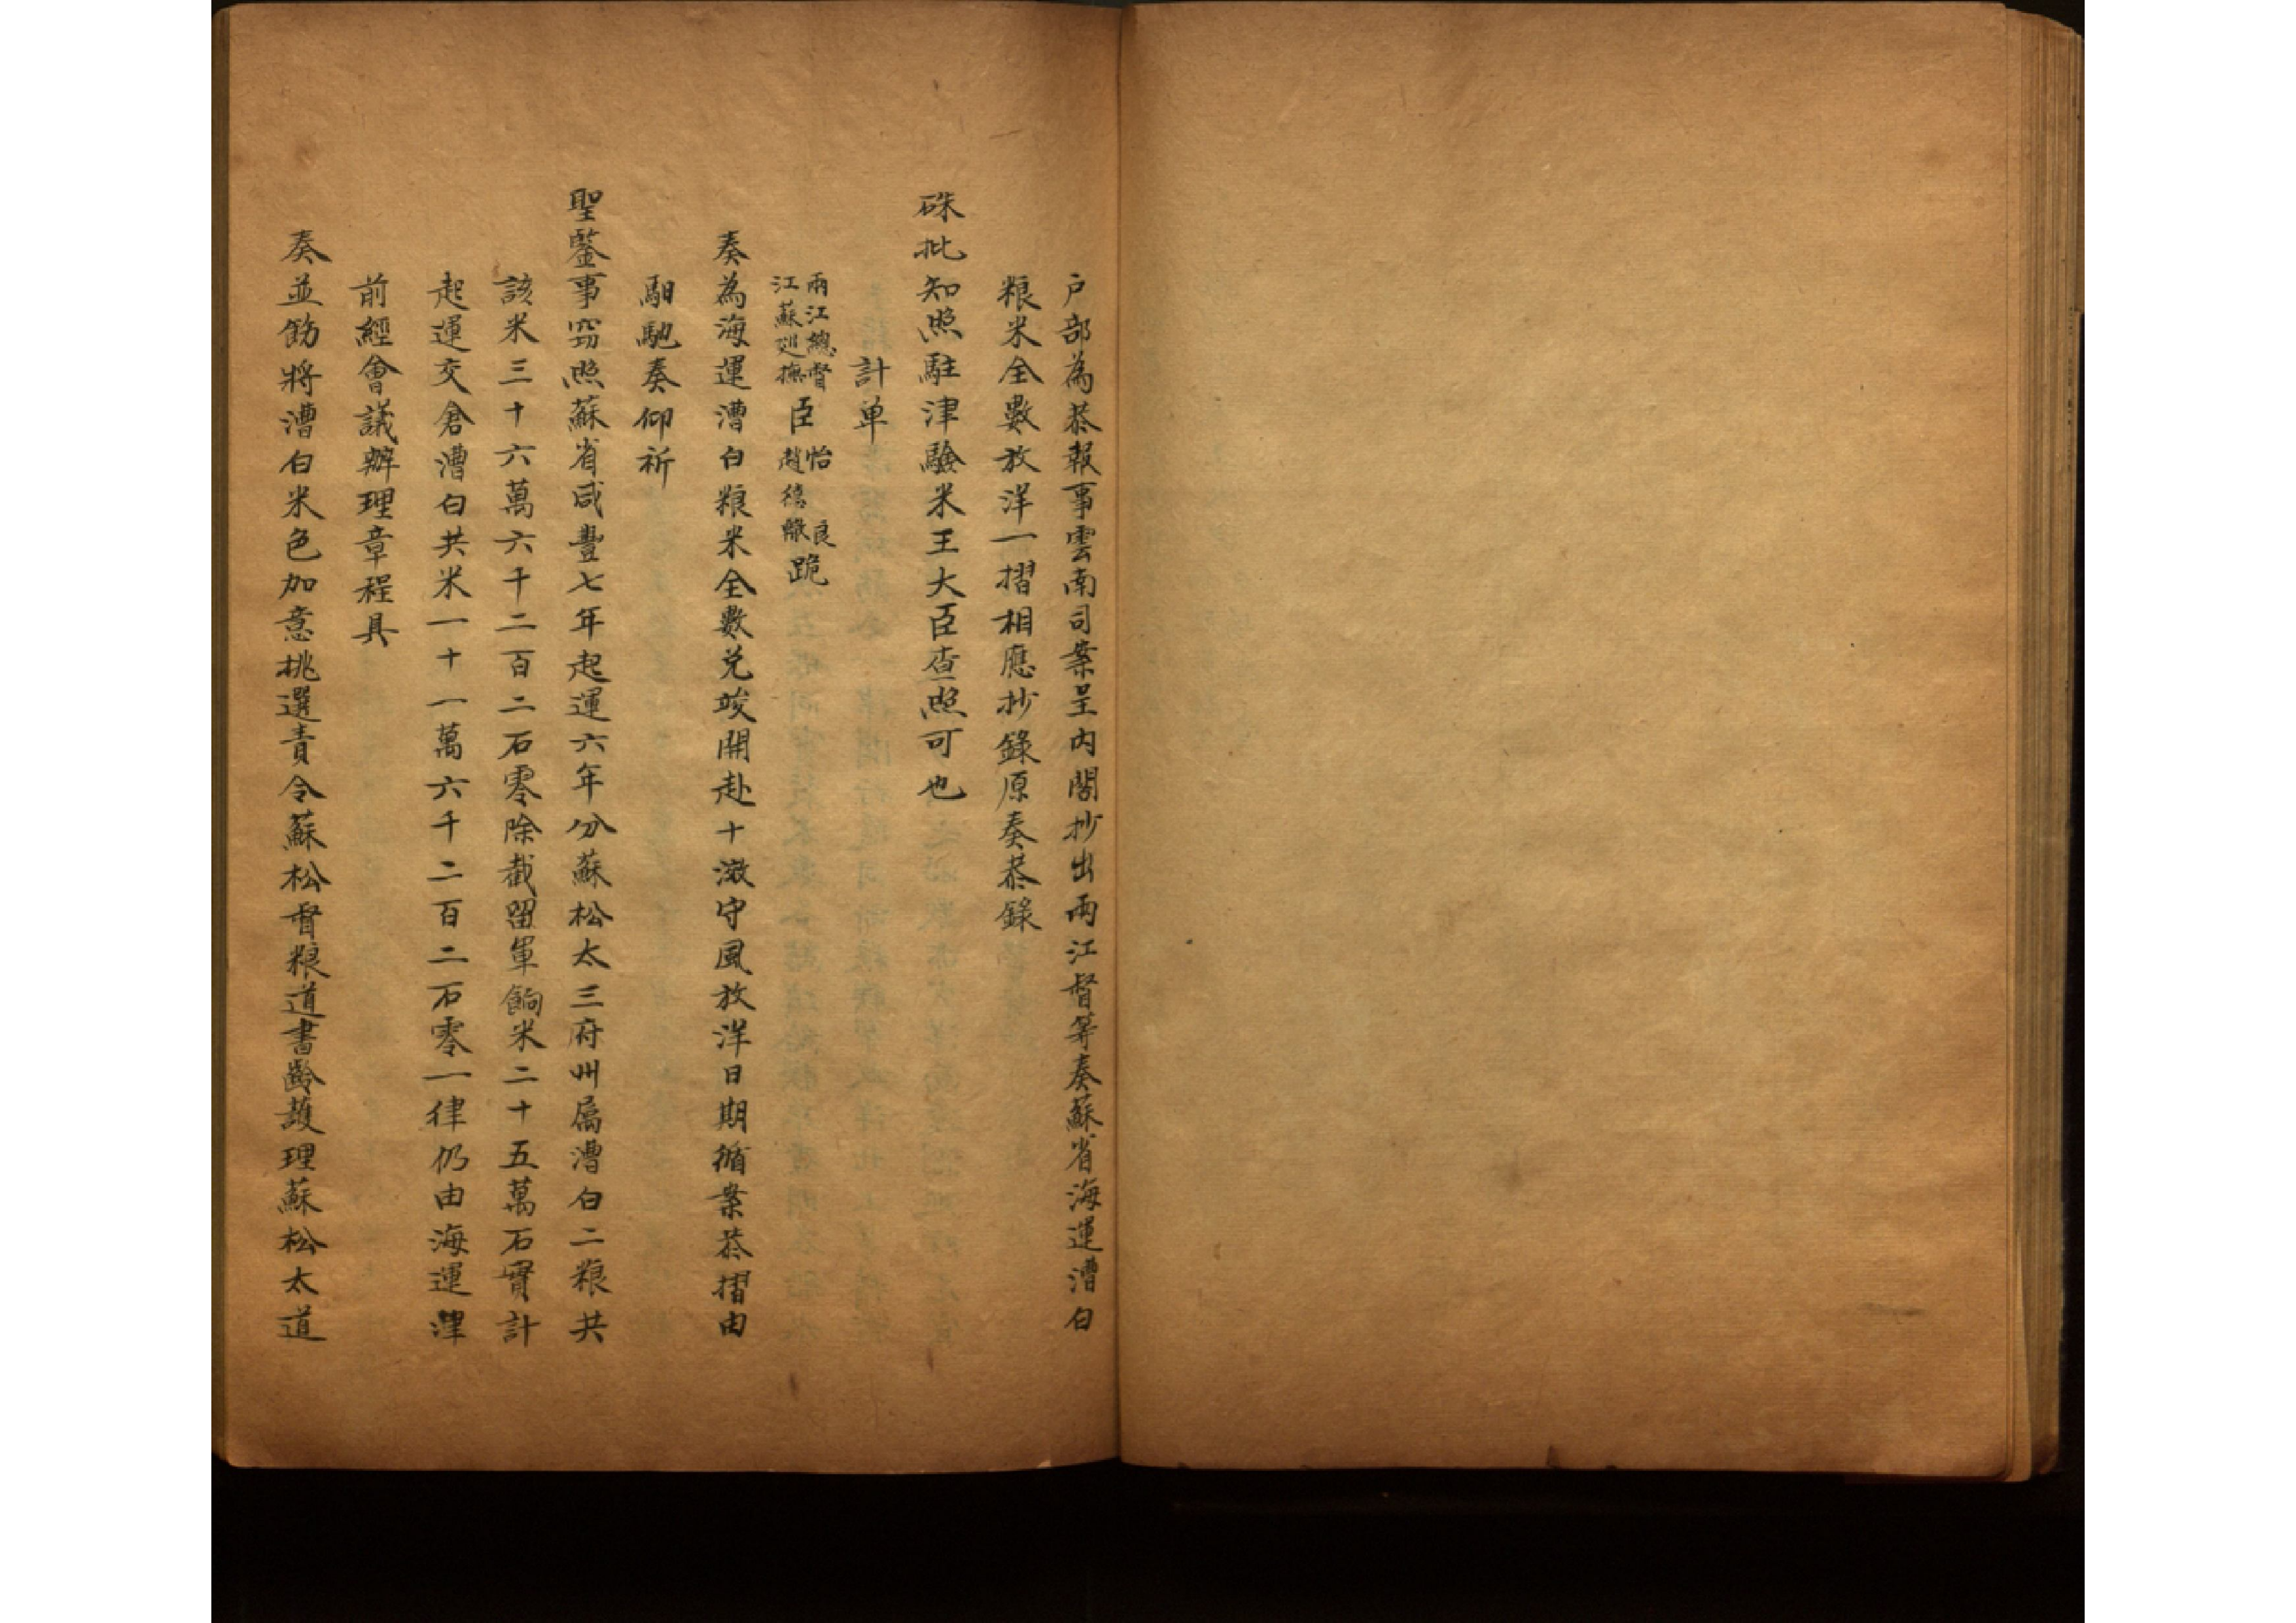 戶部為恭報事雲南司案呈內閣抄出兩江督等奏蘇省海運漕白
粮米全數放洋一摺相應抄錄原奏恭錄
硃批知照駐津驗米王大臣查照可也
計单
兩江總督
江蘇廵撫
臣
怡良
趙德轍
跪
奏為海運漕白粮米全數兌竣開赴十滧守風放洋日期循案恭摺由
馹馳奏仰祈
聖鑒事窃照蘇省咸豐七年起運六年分蘇松太三府州属漕白二粮共
該米三十六萬六千二百二石零除截留軍餉米二十五萬石實計
起運交倉漕白共米一十一萬六千二百二石零一律仍由海運津
前經會議辦理章程具
奏並飭將漕白米色加意挑選責令蘇松督粮道書齡護理蘇松太道